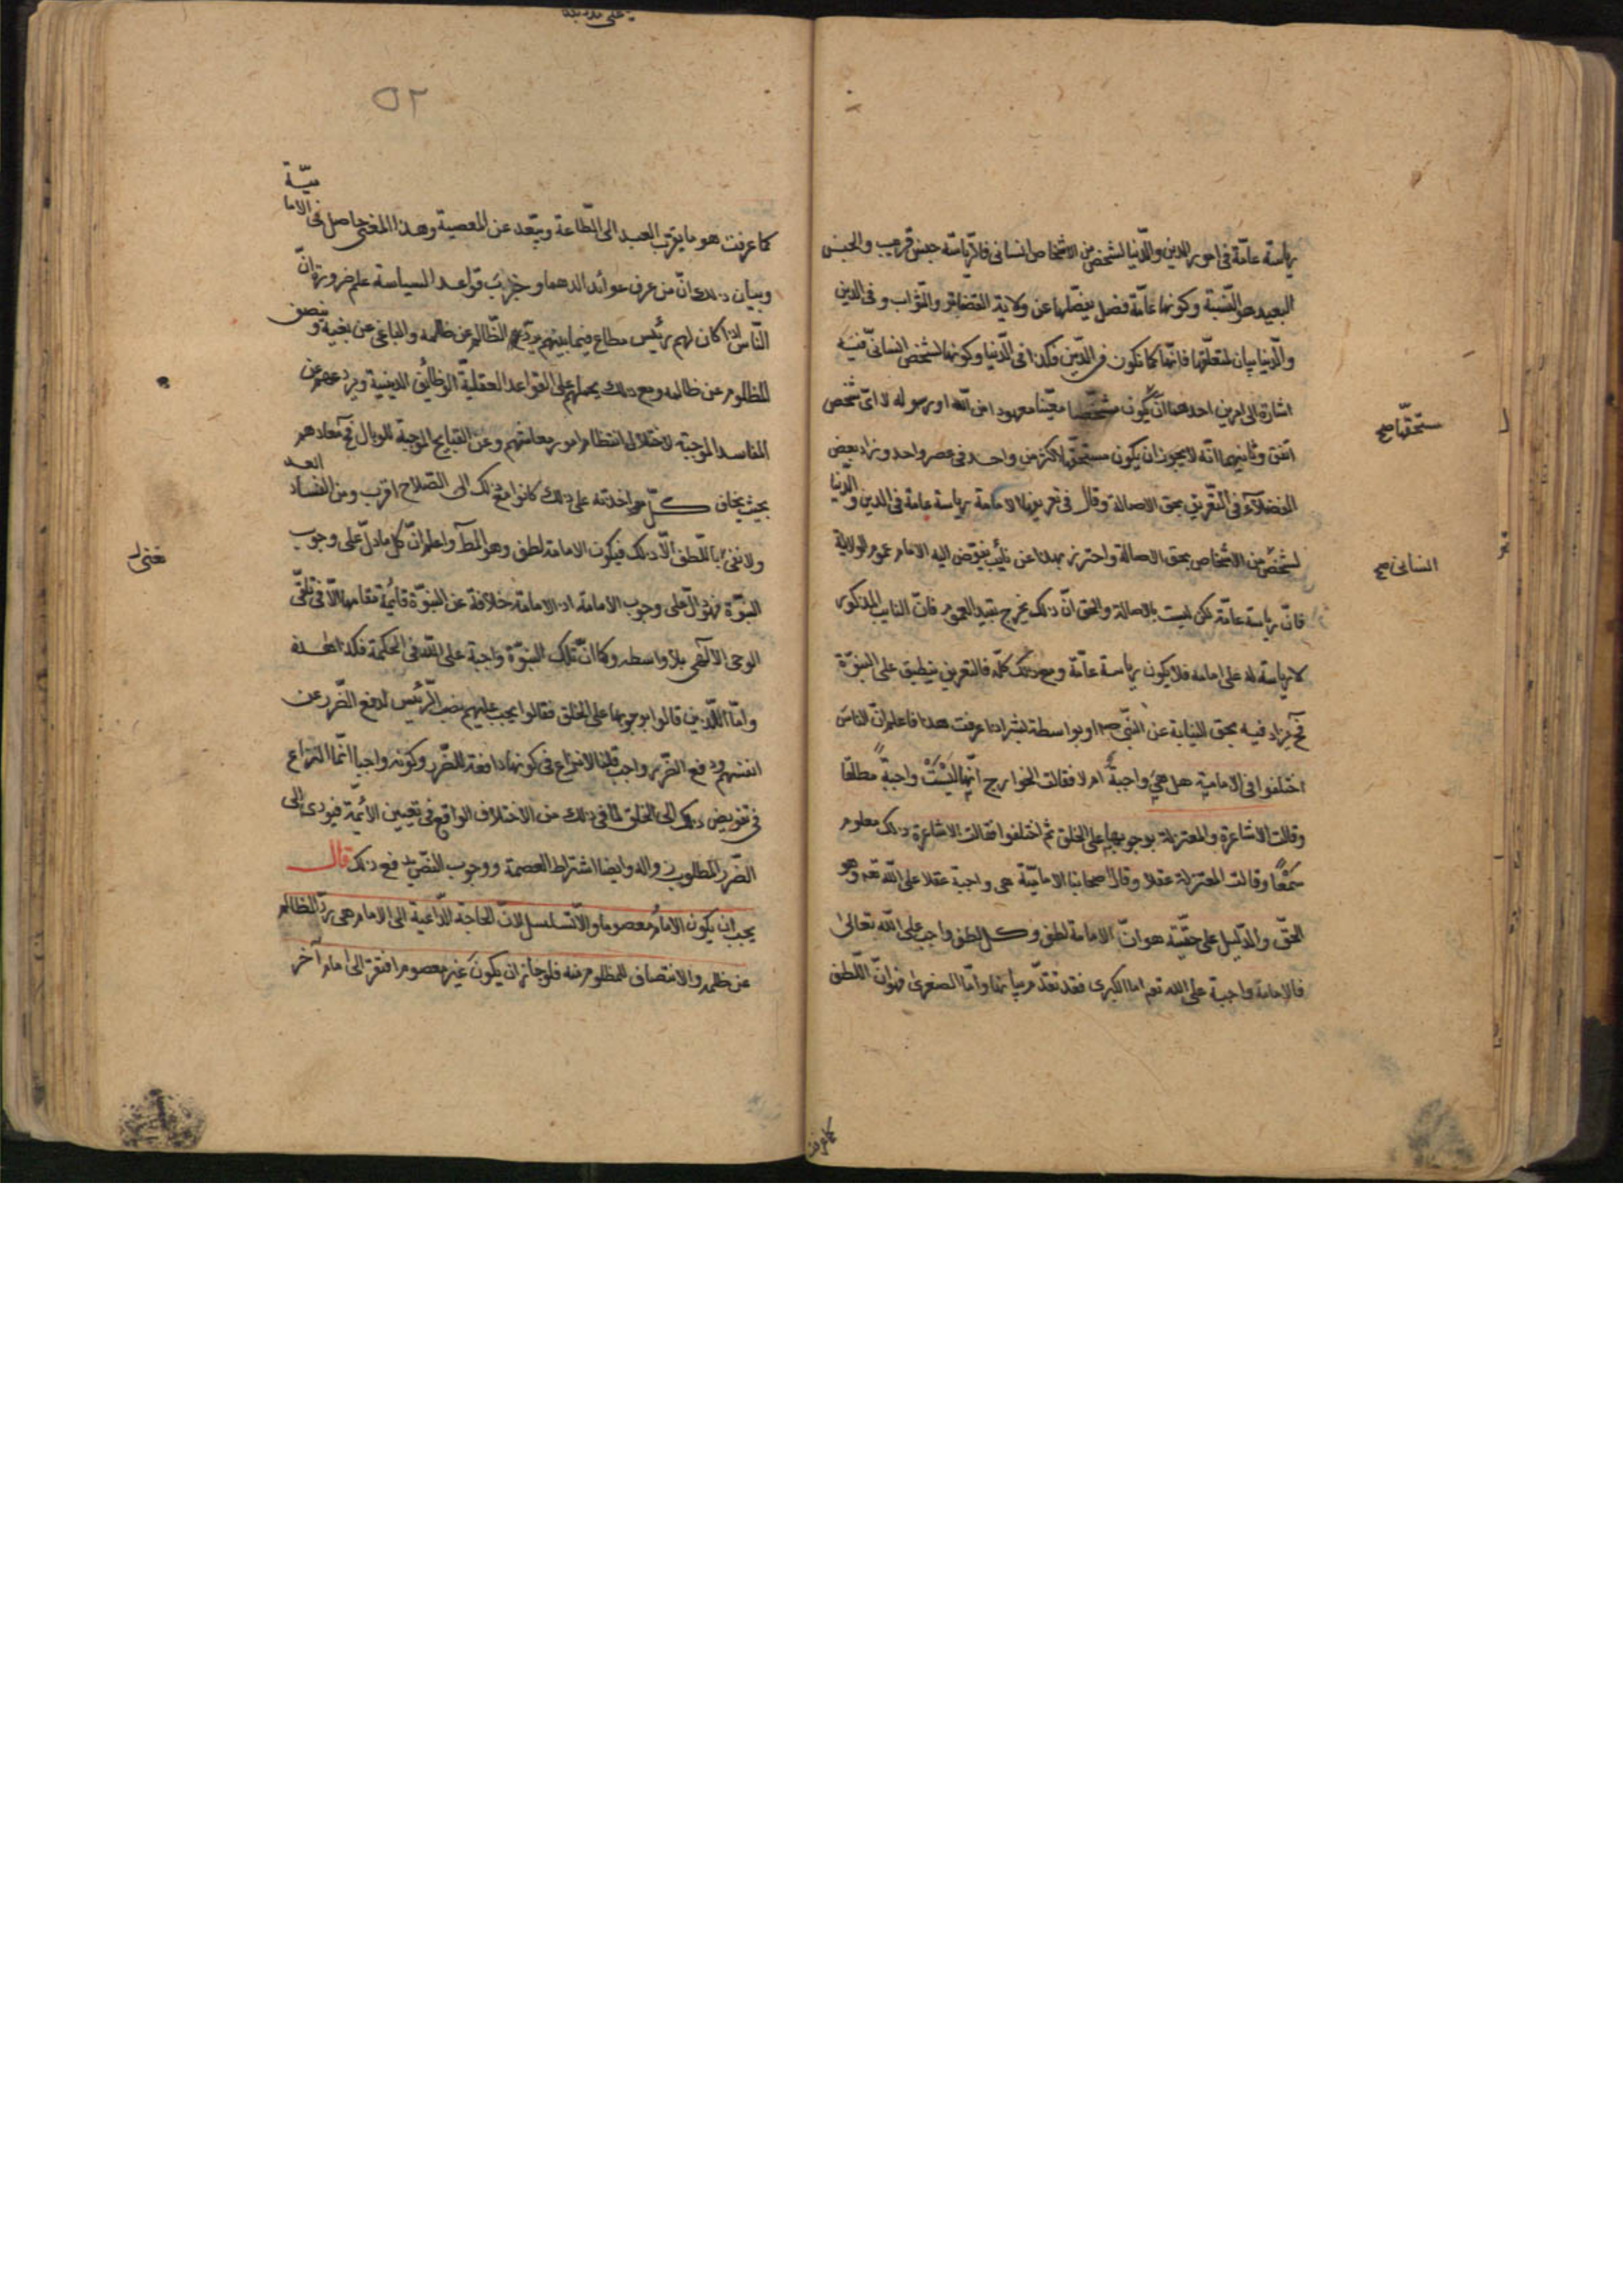 رياسة عامّة فى امور الدين والدّنيا لشخص من الاشخاص انسانى فالرّياسة جنس قريب والجنس
البعيد هو النّسبة وكونها عامّة فصل يفصّلها عن ولاية القضاة والنّواب وفى الدين
والدّنيا بيان لمتعلّقها فانّها كما تكون فى الدّين فكذا فى الدّنيا وكونها لشخص انسانىّ فيه
اشارة الى امرين احدهما انّ يكون مشخّصا معيّنا معهودا من اللّه او رسوله لا اىّ شخص
اتّفق وثانيهما انّه لا يجوز ان يكون مستحقّها اكثر من واحد فى عصر واحد وزاد بعض
مستحقّها صح
الفضلآء فى التّعريف بحق الاصالة وقال فى تعريفها الامامة رياسة عامة فى الدين والدّنيا
لشخص من الاشخاص بحق الاصالة واحترز بهذا عن نائب يفوّض اليه الامام عموم الولاية
انسانى صح
فانّ رياسة عامّة لكن ليست بالاصالة والحق انّ ذلك يخرج بقيد العموم فانّ النايب المذكور
لا رياسة له على امامه فلا يكون رياسة عامّة ومع ذلك كلّه فالتعريف ينطبق على النبوّة
فح يزاد فيه بحق النيابة عن النّبى ص او بواسطة بشر اذا عرفت هذا فاعلم انّ الناس
اختلفوا فى الامامية هل هى واجبة ام لا فقالت الخوارج انّها ليست واجبة مطلقا
وقالت الاشاعرة والمعتزلة بوجوبها على الخلق ثم اختلفوا فقالت الاشاعرة ذلك معلوم
سمعًا وقالت المعتزلة عقلا وقال اصحابنا الاماميّة هى واجبة عقلا على اللّه تعه وهو
الحقّ والدّليل على حقّيّته هو انّ الامامة لطف وكل لطف واجب على اللّه تعالى
فالامامة واجبة على الله تعه اما الكبرى فقد تقدّم بيانها وامّا الصغرى فهو انّ اللّطف
كما عرفت
كما عرفت هو ما يقرّب العبد الى الطّاعة ويبعّد عن المعصية وهذا المعنى حاصل فى الامامية
وبيان ذلك انّ من عرف عوائد الدهما وجرّب قواعد السياسة علم ضرورة انّ
النّاس اذا كان لهم رئيس مطاع فيما بينهم يردع الظّالم عن ظلمه والباغى عن بغيه وينصف
المظلوم عن ظالمه ومع ذلك يحملهم على القواعد العقليّة الوظائف الدينية ويردعهم عن
المفاسد الموجبة لاختلال انتظام امور معاشهم وعن القبايح الموجبة للوبال فى معادهم
بحيث يخاف كلّ مواخذته على ذلك كانوا مع ذلك الى الصّلاح اقرب ومن الفساد ابعد
ولا نعنى باللّطف الّا ذلك فيكون الامامة لطف وهو المط واعلم انّ كل ما دلّ على وجوب
نعنى
النبوّة فهو دالّ على وجوب الامامة اذ الامامة خلافة عن النبوّة قائمة مقامها الّا فى تلقّى
الوحى الالهى بلا واسطه وكما انّ تلك النبوّة واجبة على اللّه فى الحكمة فكذا هذه
وامّا الّذين قالوا بوجوبها على الخلق فقالوا يجب عليهم نصب الرّئيس لدفع الضّرر عن
انفسهم ودفع الضّرر واجب قلنا لا نزاع فى كونها دافعة للضّرر وكونه واجباً انّما النزاع
فى تفويض ذلك الى الخلق لما فى ذلك من الاختلاف الواقع فى تعيين الائمّة فيودى الى
الضّرر المطلوب زواله وايضا اشتراط العصمة ووجوب النّصّ يدفع ذلك قال
يجب ان يكون الامام معصوما والّا تسلسل لانّ الحاجة الدّاعية الى الامام هى ردّ الظالم
عن ظلمه والانتصاف للمظلوم منه فلو جاز ان يكون غير معصوم افتقر الى امام آخر
٥٢